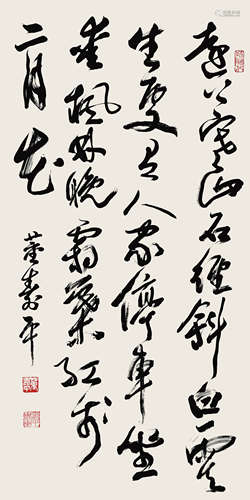 遠上寒山石徑斜白雲
生處有人家停車坐
愛楓林晚霜葉紅於
二月花
董壽平